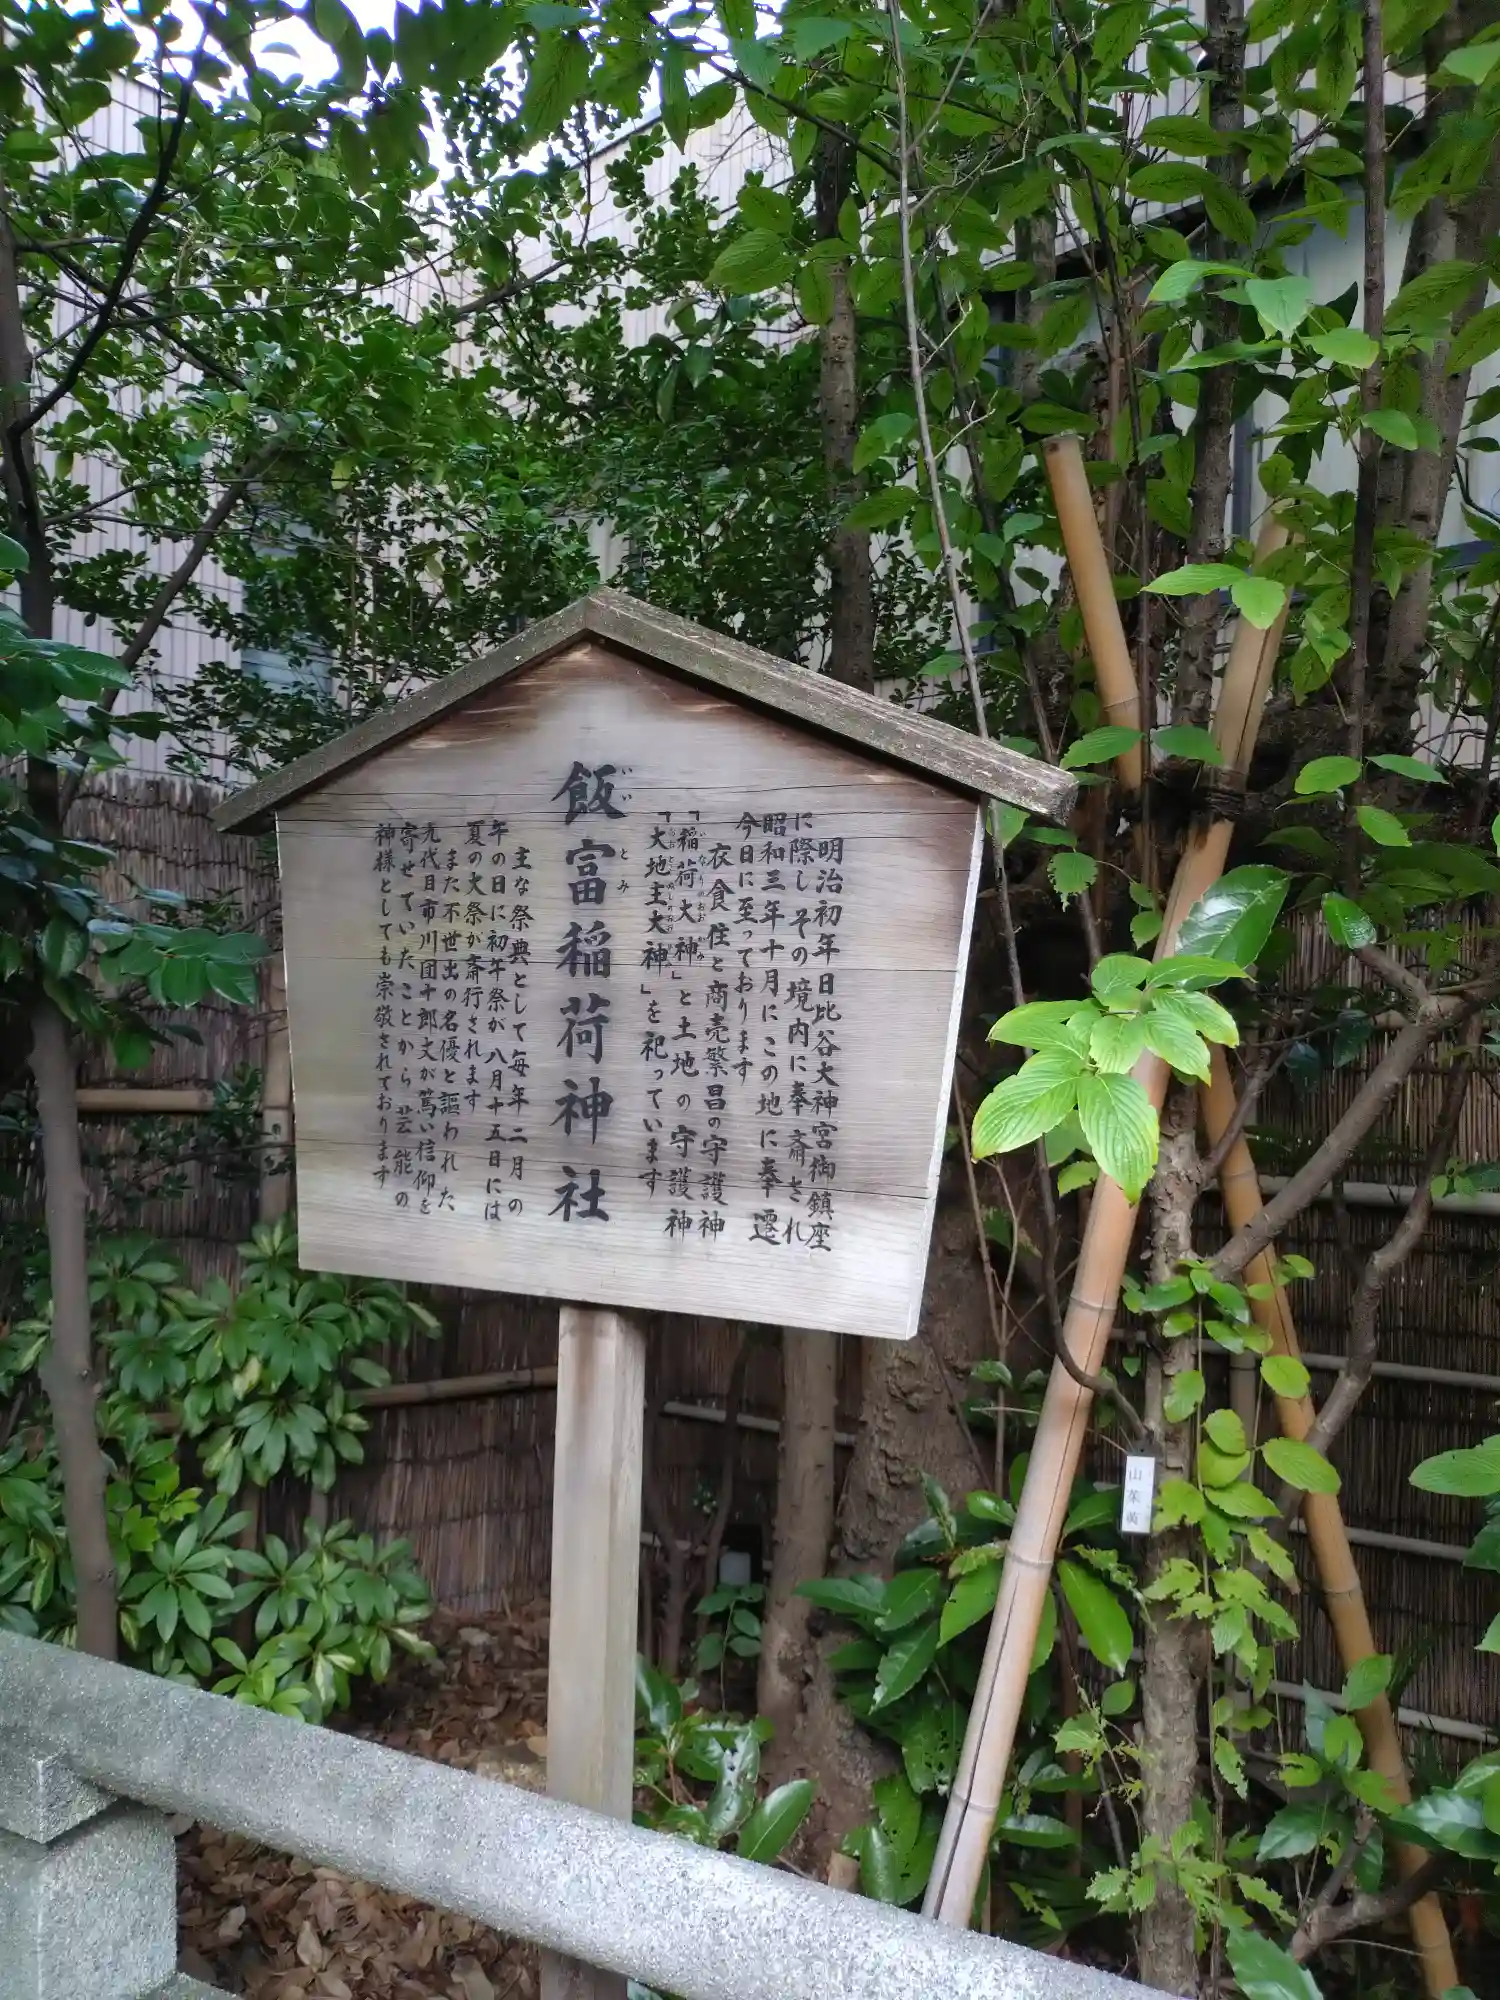 明治初年日比谷大神宮御鎮座
に際しその境内に奉斎され
昭和三年十月にこの地に奉遷
今日に至っております
衣食住と商売繁昌の守護神
「稲荷大神」と土地の守護神
「大地主大神」を祀っています
飯富稲荷神社
いいとみ
主な祭典として毎年二月の
午の日に初午祭が八月十五日には
夏の大祭が斎行されます
また不世出の名優と謳われた
九代目市川団十郎丈が篤い信仰を
寄せていたことから芸能の
神様としても崇敬されております
山茱萸